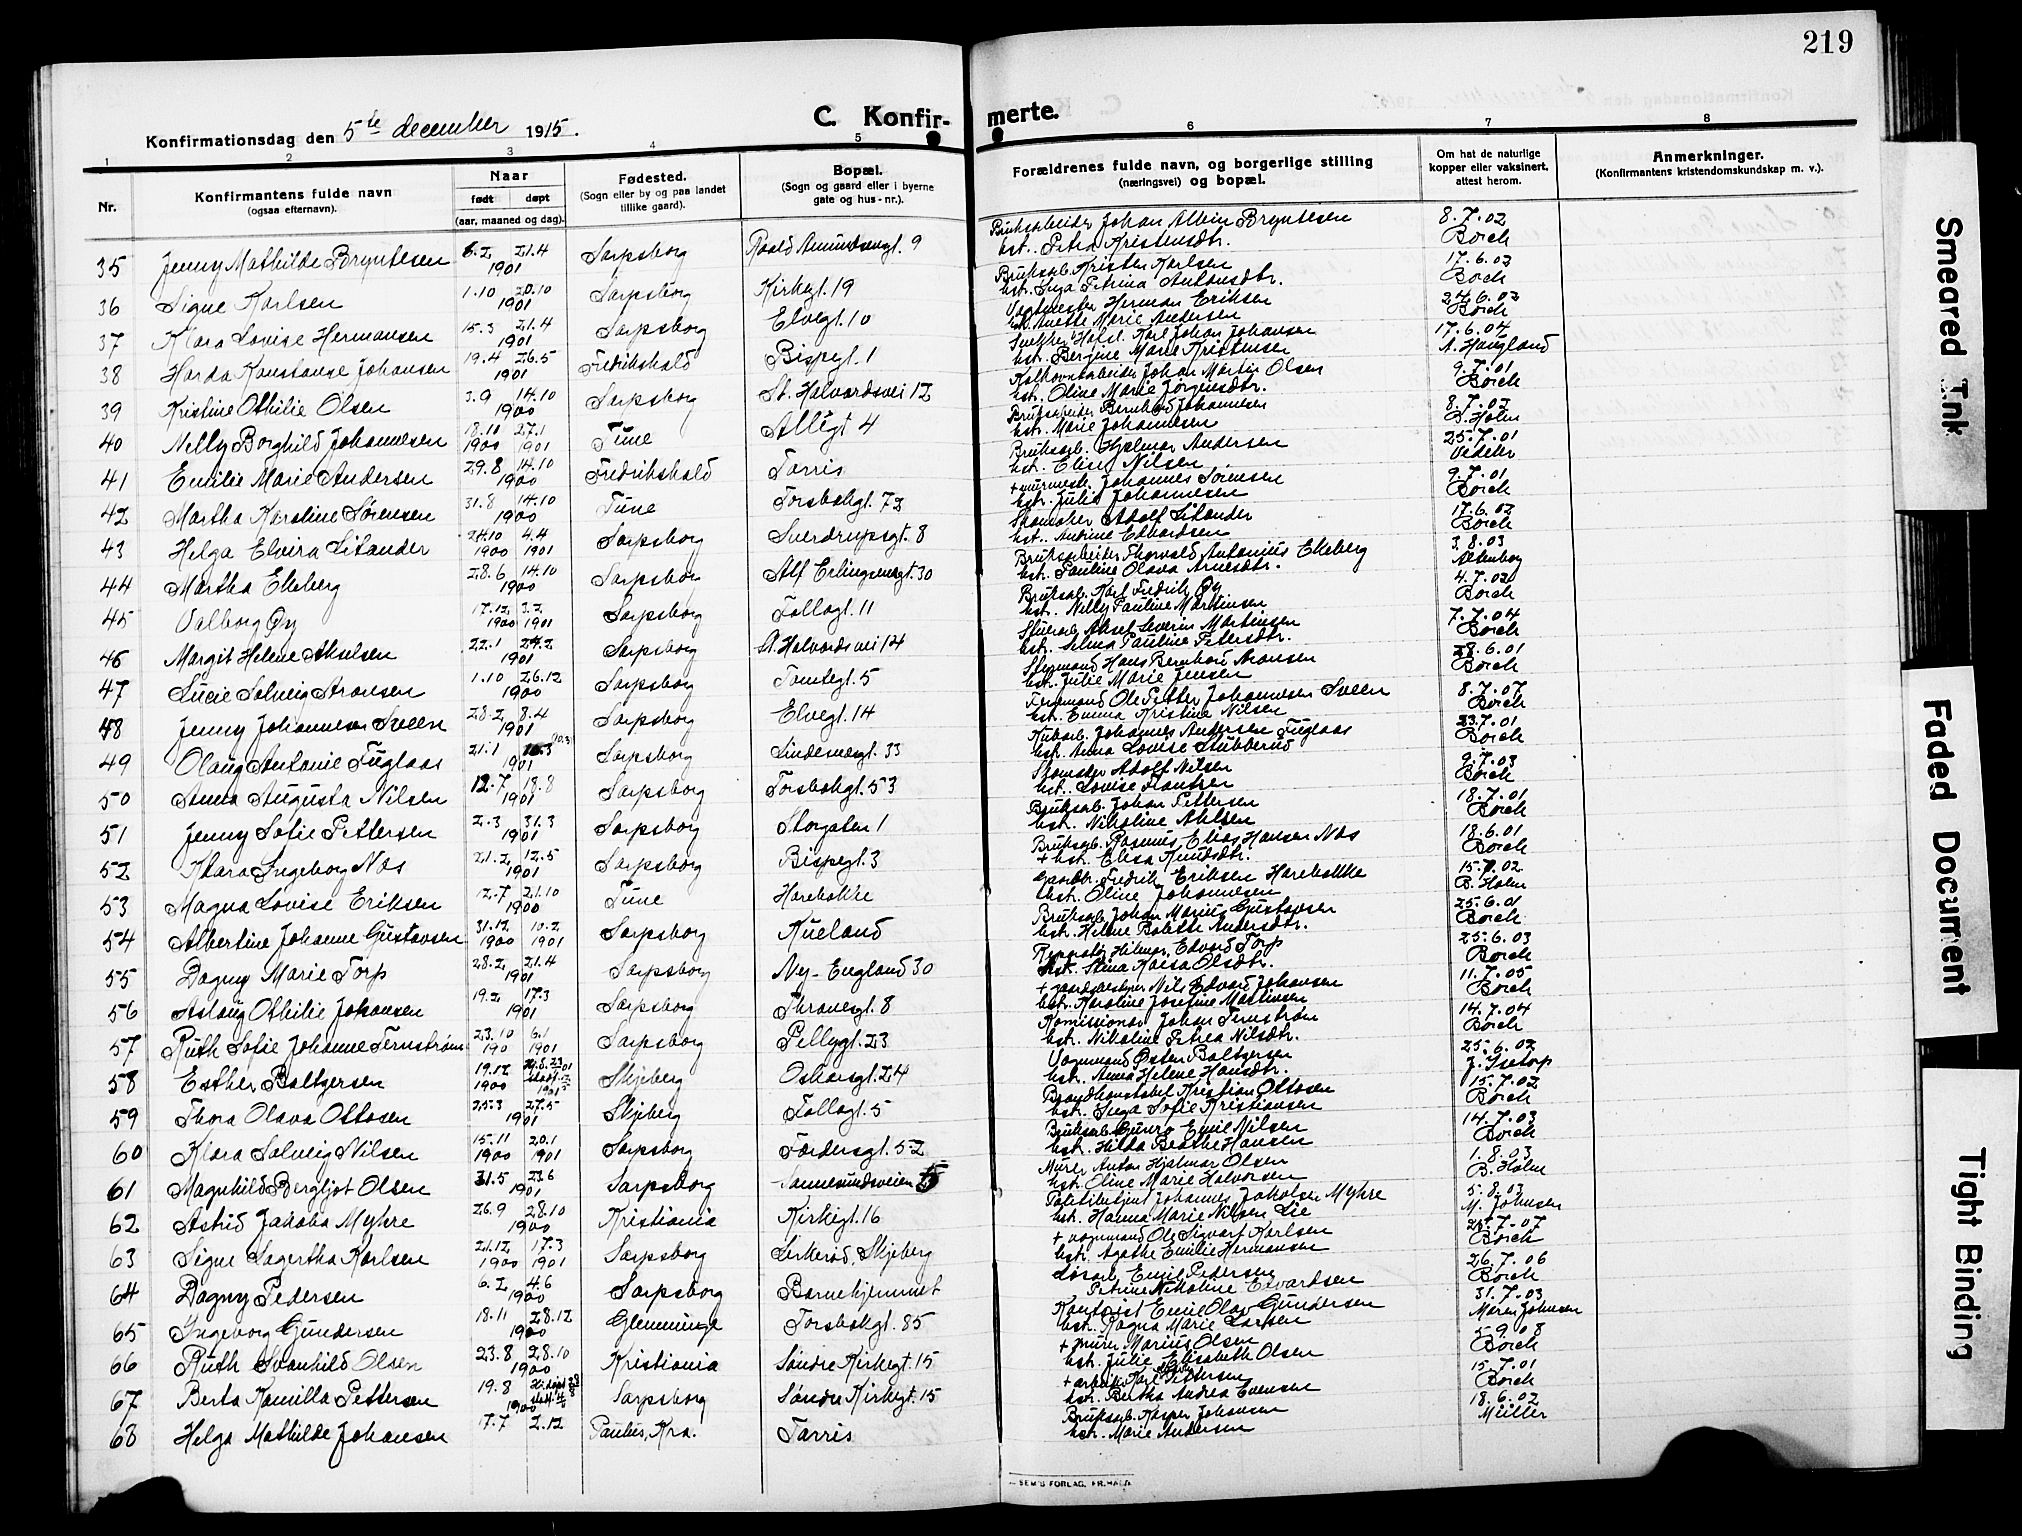 219
Konfirmationsdag den 5te december 1915.
C. Konfir-
merte.
1 2 3 4 5 6 7 8
Nr.
Konfirmantens fulde navn
(ogsaa efternavn).
Naar
født døpt
(aar, maaned og dag).
Fødested.
(Sogn eller by og paa landet
tillike gaard).
Bopæl.
(Sogn og gaard eller i byerne
gate og hus-nr.).
Forældrenes fulde navn, og borgerlige stilling
(næringsvei) og bopæl.
Om hat de naturlige
kopper eller vaksinert,
attest herom.
Anmerkninger.
(Konfirmantens kristendomskundskap m. v.).
35 Jenny Mathilde Bryntesen 6.2 21.4 1901 Sarpsborg Roald Amundsengt. 9 Bruksarbeider Johan Albin Bryntesen 8.7.02
hst. Petra Kristensdtr. Borch
36 Signe Karlsen 1.10 20.10 1901 Sarpsborg Kirkegt. 19 Bruksarb. Kristen Karlsen 17.6.02
hst. Inga Petrina Antonsdtr. Borch
37 Klara Lovise Hermansen 15.3 21.4 1901 Sarpsborg Elvegt. 10 Herman Eriksen 24.6.02
hst. Anette Marie Andersen Borch
38 Harda Konstanse Johansen 19.4 26.5 1901 Fredrikshald Bispegt. 1 Karl Johan Johansen 17.6.04
hst. Bergine Marie Kristensen A. Haugland
39 Kristine Othilie Olsen 3.9 14.10 1900 Sarpsborg St. Halvordsvei 12 Johan Martin Olsen 9.7.01
hst. Oline Marie Jørgensdtr. Borch
40 Nelly Borghild Johannesen 18.11 1900 27.1 1901 Tune Allégt 4 Bruksarbeider Bernhard Johannesen 8.7.02
hst. Marie Johannesen B. Holm
41 Emilie Marie Andersen 29.8 14.10 1900 Fredrikshald Tarris Bruksarb. Hjalmar Andersen 25.7.01
hst. Elise Nilsen Vedeler
42 Martha Karoline Sørensen 31.8 14.10 1900 Tune Torsbekgt. 72 + murmester Johannes Sørensen 9.7.01
hst. Julie Johannesen Borch
43 Helga Elvira Litander 24.10 1900 4.4 1901 Sarpsborg Sverdrupsgt. 8 Skomaker Adolf Litander 17.6.02
hst. Antine Edvardsen Borch
44 Martha Ekeberg 28.6 14.10 1900 Sarpsborg Alf Erlingsensgt. 30 Bruksarbeider Thorvald Antonius Ekeberg 3.8.03
hst. Pauline Olava Arnesdtr.
45 Valborg Øy 17.12 1900 3.2 1901 Sarpsborg Follogt. 11 Bruksarb. Karl Fredrik Øy 4.7.02
hst. Nelly Pauline Martinsen Borch
46 Margit Helene Akselsen 22.1 24.2 1901 Sarpsborg St. Halvordsvei 14 Aksel Severin Martinsen 7.7.04
hst. Selma Pauline Petersdtr. Borch
47 Lucie Solveig Aronsen 1.10 26.12 1900 Sarpsborg Tomtegt. 5 Hans Bernhard Aronsen 28.6.01
hst. Julie Marie Jensen Borch
48 Jenny Johannesen Sveen 28.2 8.4 1901 Sarpsborg Elvegt. 14 Ole Petter Johannesen Sveen 8.7.07
hst. Emma Kristine Nilsen Borch
49 Olaug Antonie Fuglaas 21.1 10.3 1901 Sarpsborg Lindemansgt. 33 Johannes Andersen Fuglaas 23.7.01
hst. Anna Lovise Stubberud Borch
50 Anna Augusta Nilsen 12.7 18.8 1901 Sarpsborg Torsbekgt. 53 Skomaker Adolf Nilsen 9.7.03
hst. Lovise Borch
51 Jenny Sofie Pettersen 2.3 31.3 1901 Sarpsborg Storgaten 1 Bruksarb. Johan Pettersen 18.7.01
hst. Nikoline Borch
52 Klara Ingeborg Næs 21.2 12.5 1901 Sarpsborg Bispegt. 3 Bruksarb. Rasmus Elias Hansen Næs 18.6.01
+ hst. Elisa Knudsdtr. Borch
53 Magna Lovise Eriksen 12.7 21.10 1900 Tune Harebakke Gaardbr. Fredrik Eriksen Harebakke 15.7.02
hst. Oline Johannesen B. Holm
54 Albertine Johanne Gustavsen 31.12 1900 10.2 1901 Sarpsborg Kueland Bruksarb. Johan Marius Gustavsen 25.6.01
hst. Helene Bolette Andersdtr. Borch
55 Dagny Marie Torp 28.2 21.4 1901 Sarpsborg Ny-England 30 Hilmar Edvard Torp 25.6.03
hst. Stina Kaisa Olsdtr. Borch
56 Aslaug Othilie Johansen 19.2 17.3 1901 Sarpsborg Thranesgt. 8 Nils Edvard Johansen 11.7.05
hst. Karoline Josefine Martinsen Borch
57 Ruth Sofie Johanne Ternstrøm 23.10 190 6.1 1901 Sarpsborg Pellygt. 23 Komissionær Johan Ternstrøm 14.7.04
hst. Nikoline Petrea Nilsdtr. Borch
58 Esther Baltzersen 19.12 1900 Skjeberg Oskarsgt. 24 Vognmand Østen Baltzersen 25.6.02
hst. Anna Helene Hansdtr. J. Isetorp
59 Thora Olava Ottosen 25.3 27.5 1901 Skjeberg Follogt. 5 Brandkonstabel Kristian Ottosen 15.7.02
hst. Inga Sofie Kristiansen Borch
60 Klara Solveig Nilsen 15.11 1900 20.1 1901 Sarpsborg Færdersgt. 52 Bruksarb. Gunro Emil Nilsen 14.7.03
hst. Hilda Beathe Hansen Borch
61 Magnhild Bergljot Olsen 31.5 23.6 1901 Sarpsborg Sannesundsveien Murer Anton Hjalmar Olsen 1.8.03
hst. Oline Marie Halvorsen B. Holm
62 Astrid Jakoba Myhre 26.9 28.10 1900 Kristiania Kirkegt. 16 Politibetjent Johannes Jakobsen Myhre 5.8.03
hst. Hanna Marie Nilsen Lie M. Johnsen
63 Signe Lagertha Karlsen 21.12 1900 17.3 1901 Sarpsborg Lerkerød, Skjeberg + vognmand Ole Sigvart Karlsen 7.07
hst. Agathe Emilie Hermansen Borch
64 Dagny Pedersen 6.2 4.6 1900 Sarpsborg Barnehjemmet Løsarb. Emil Pedersen 26.7.06
Petrine Nikoline Edvardsen Borch
65 Ingeborg Gundersen 18.11 28.12 1900 Glemminge Torsbekgt. 85 Kontorist Emil Olav Gundersen 31.7.03
hst. Ragna Marie Larsen Maren Johnsen
66 Ruth Svanhild Olsen 23.8 28.10 1900 Kristiania Søndre Kirkegt. 15 + murer Marius Olsen 5.9.08
hst. Julie Elisabeth Olsen Borch
67 Berta Kamilla Pettersen 19.8 1900 Sarpsborg Søndre Kirkegt. 15 + arbeider Karl Pettersen 15.7.01
hst. Bertha Andrea Evensen Borch
68 Helga Mathilde Johansen 17.7 2.12 Paulus, Kra. Tarris Bruksarb. Kasper Johansen 18.6.02
hst. Marie Andersen Müller
SEM'S FORLAG, FR.HALD.
Smeared Ink
Faded Document
Tight Binding